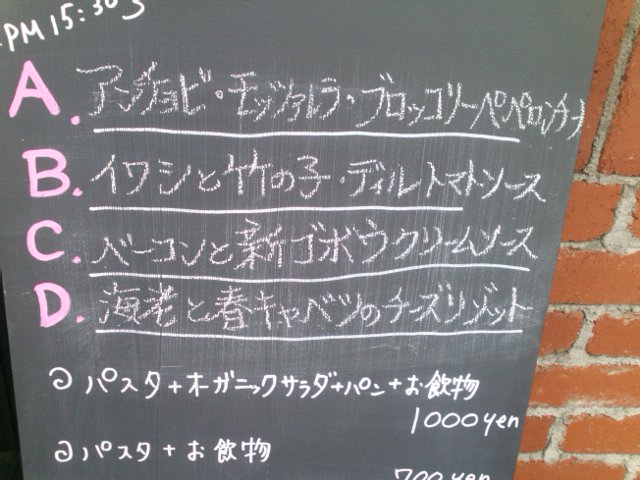 PM 15:30
A. アンチョビ・モッツァレラ・ブロッコリーペペロンチーノ
B. イワシと竹の子・ディルトマトソース
C. ベーコンと新ゴボウクリームソース
D. 海老と春キャベツのチーズリゾット
パスタ+オーガニックサラダ+パン+お飲物
1000yen
パスタ+お飲物
700yen